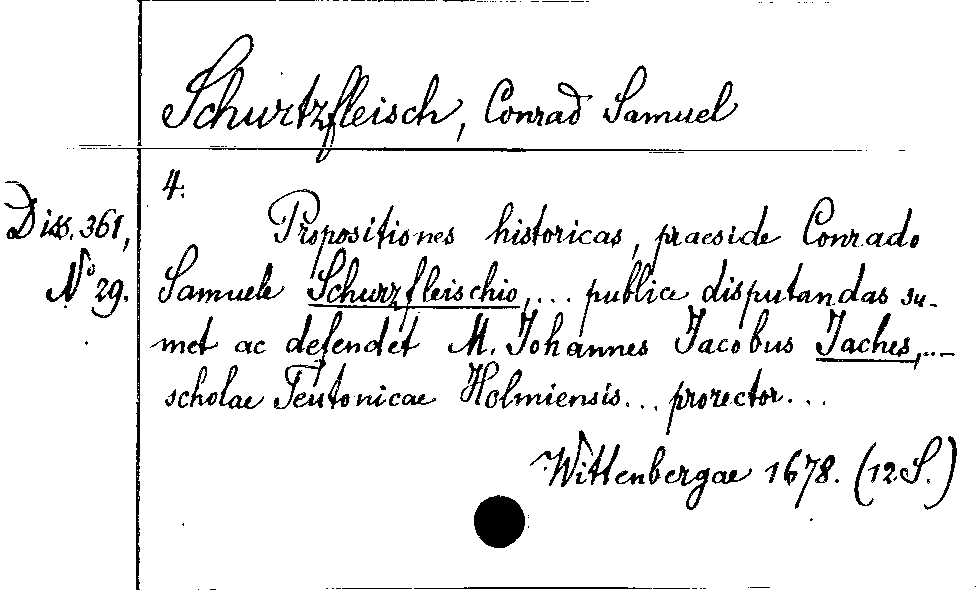 Schurtzfleisch, Conrad Samuel
Diss. 361,
N° 29.
4.
Propositiones historicas, praeside Conrado
Samuele Schurzfleischio, ... publice disputandas su-
met ac defendet M. Johannes Jacobus Jaches, ...
scholae Teutonicae Holmiensis ... prorector ...
Wittenbergae 1678. (12 S.)